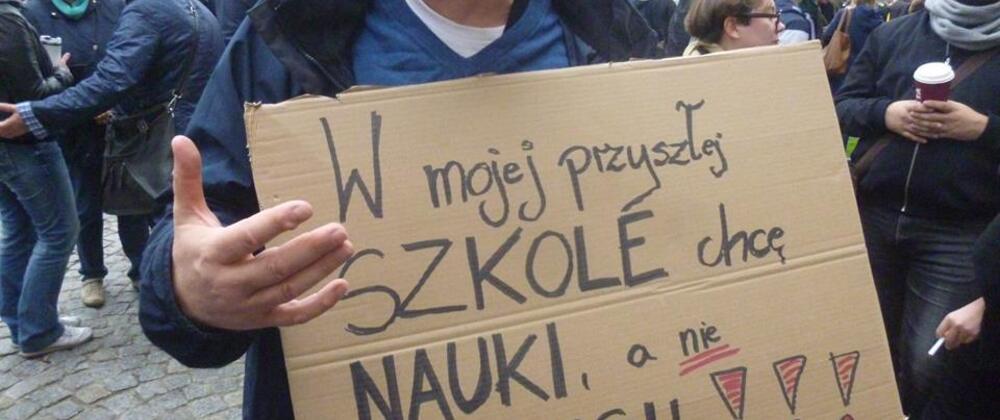 W mojej przyszłej
SZKOLÉ chcę
NAUKI, a nie